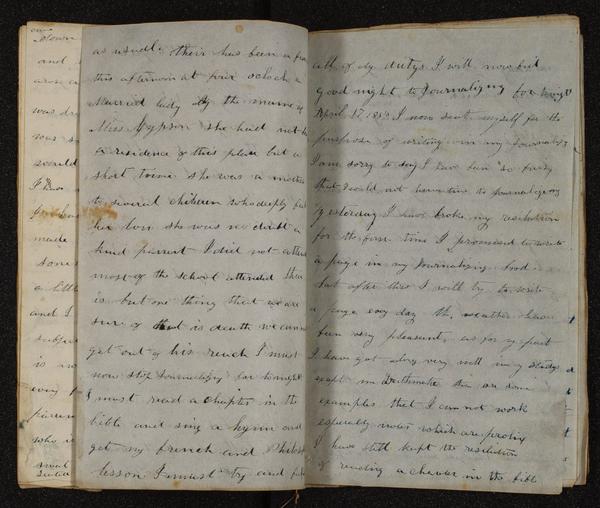 own
down
and
aron
was dr
was s
would
I kno
made
some
a littl
and I
subject
is no
every
parem
who i
as usual. their has been a
this afternoon at four oclock a
Married lady by the name of
Miss she had not
a residence of this place but a
short time she was a mother
to several children who deeply feel
her loss she was no doubt a
kind parrent I did not attend
most of the school attended there
is but one thing that we are
sure of that is death we can not
get out of his reach I must
now stop Journalizing for tonight
I must read a chapter in the
bible and sing a hymn and
get my french and Philos
lesson I must try and
all of my dutys I will now bid
good night to Journalizing for tonight
April 17 I now seat myself for the
purpose of writing in my Journal
I am sorry to say I have been so busy
that I could not have time to journalize
yesterday I have broke my resolution
for the first time I promised to write
a page in my Journalizing book
but after this I will try to write
a page evry day the weather have
been very pleasant, as for my part
I have got along very well in my studys
exept in Arithmatic there are some
examples that I can not work
especialy notes which are
I have still kept the resolution
of reading a chapter in the bible